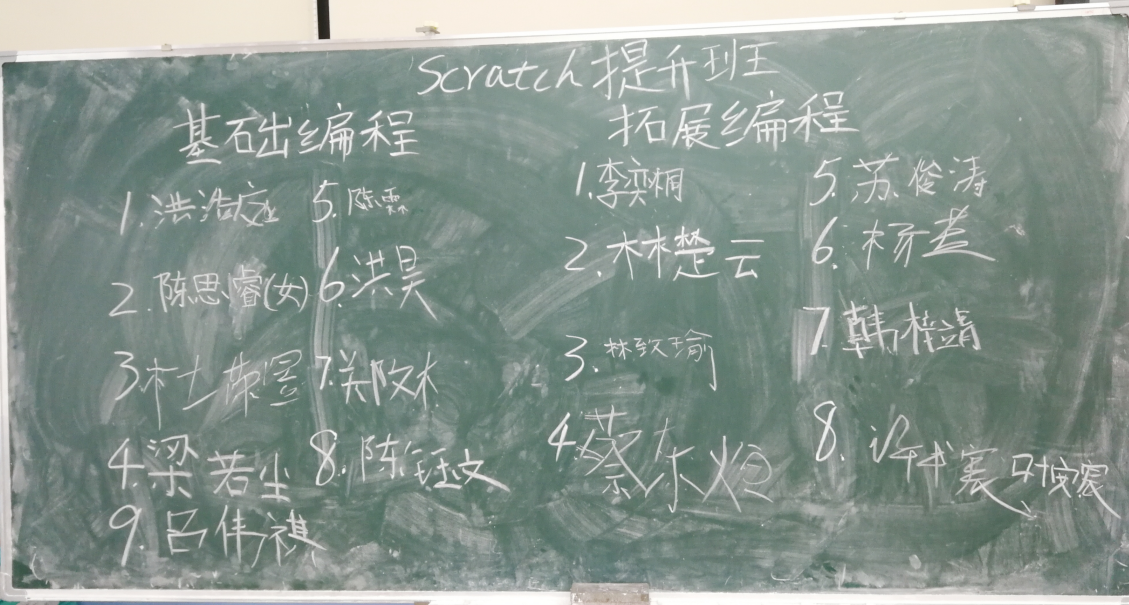 Scratch提升班
基础编程
拓展编程
1.洪浩
5.陈霖
2.陈思睿(女)
6.洪昊
3
7.
4.梁若尘
8.陈钰文
9.吕伟祺
1.李奕炯
5.苏俊涛
2.林楚云
6.杨
7.韩梓靖
3.林致瑜
4.蔡东煊
8.许